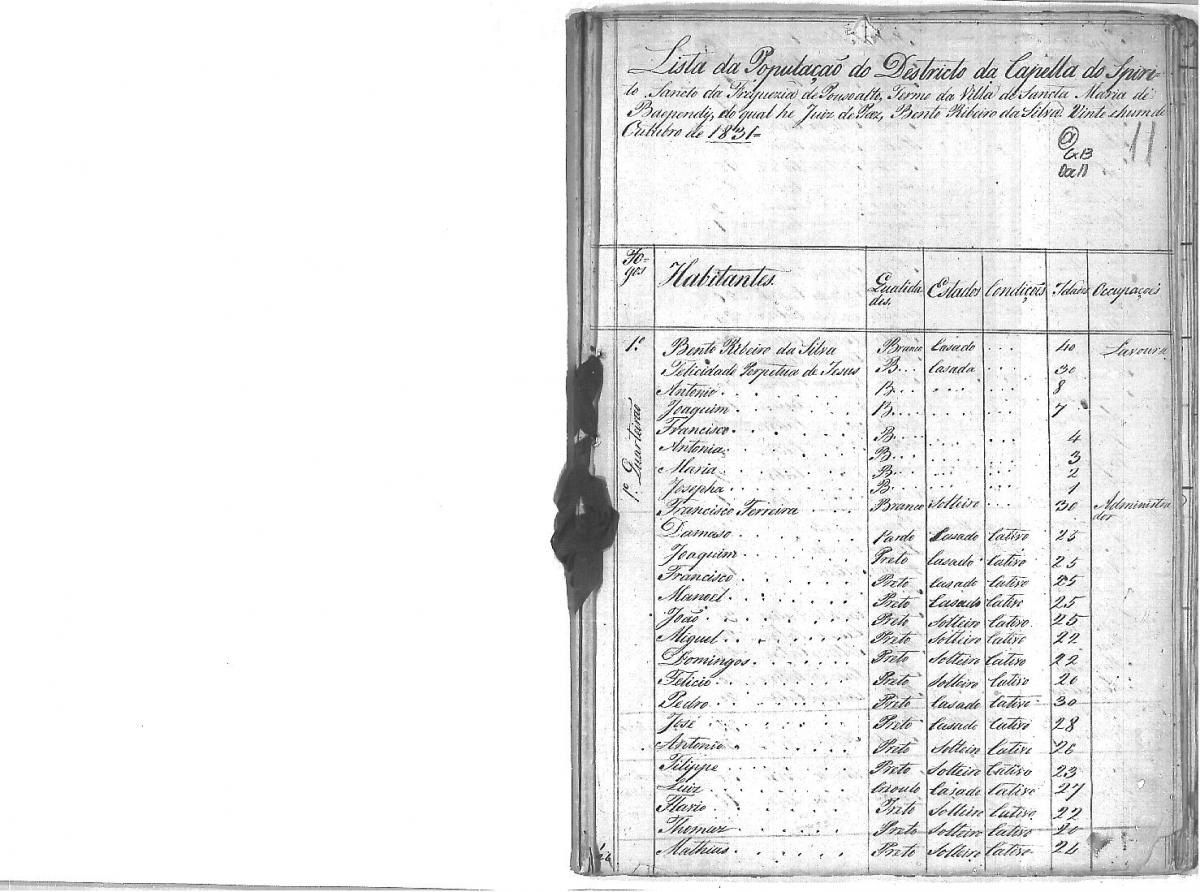 Lista da População do Destricto da Capella do Spiri-
to Sancto da Freguezia de Pousoalto, Termo da Villa de Sancta Maria de
Baependy, do qual he Juiz de Paz, Bento Ribeiro da Silva. Vinte e hum de
Outubro de 1831=
11
a
Cx 13
Doc 11
Fo-
gos Habitantes. Qualida
des. Estados Condições Idades Occupações
1º Quarteirão
1.º Bento Ribeiro da Silva Branco Casado . . . 40 Lavoura
Felicidade Perpetua de Jesus B... Casada . . . 30
Antonio . . . B... . . . . . . 8
Joaquim . . . B... . . . . . . 7
Francisco . . . B... . . . . . . 4
Antonia . . . B... . . . . . . 3
Maria . . . B... . . . . . . 2
Josepha . . . B... . . . . . . 1
Francisco Ferreira . . . Branco Solteiro . . . 30 Administra
dor
Damaso . . . Pardo Casado Cativo 25
Joaquim . . . Preto Casado Cativo 25
Francisco . . . Preto Casado Cativo 25
Manoel . . . Preto Casado Cativo 25
João . . . Preto Solteiro Cativo 25
Miguel . . . Preto Solteiro Cativo 22
Domingos . . . Preto Solteiro Cativo 22
Felicio . . . Preto Solteiro Cativo 20
Pedro . . . Preto Casado Cativo 30
José . . . Preto Casado Cativo 28
Antonio . . . Preto Solteiro Cativo 26
Filippe . . . Preto Solteiro Cativo 23
Luiz . . . Crioulo Casado Cativo 27
Flavio . . . Preto Solteiro Cativo 22
Thomaz . . . Preto Solteiro Cativo 20
Mathias . . . Preto Solteiro Cativo 24